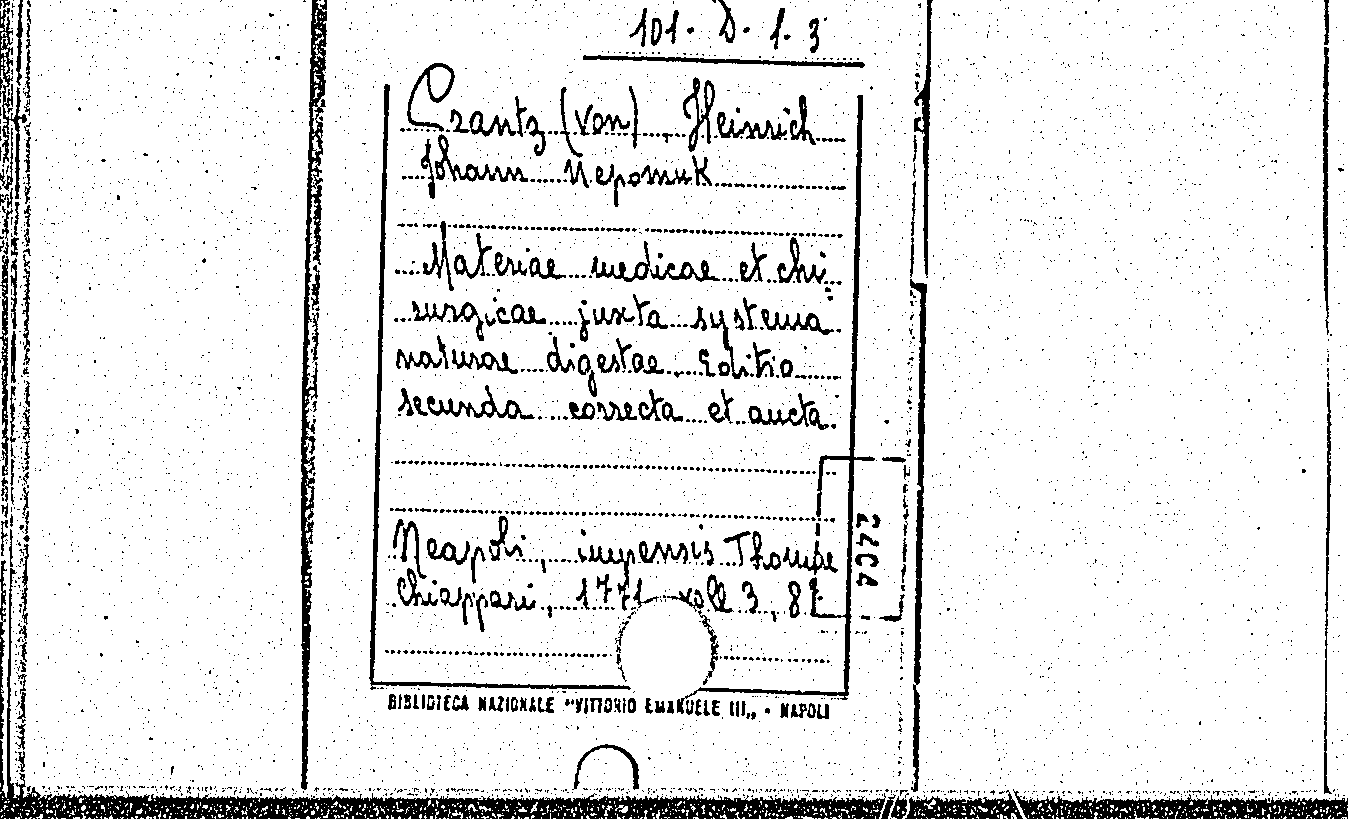 101. D. 1. 3
Crantz (von), Heinrich
Johann Nepomuk
Materiae medicae et chi=
rurgicae juxta systema
naturae digestae. Editio
secunda correcta et aucta.
Neapoli, impensis Thomae
Chiappari, 1771 voll 3, 8º
BIBLIOTECA NAZIONALE "VITTORIO EMANUELE III„ - NAPOLI